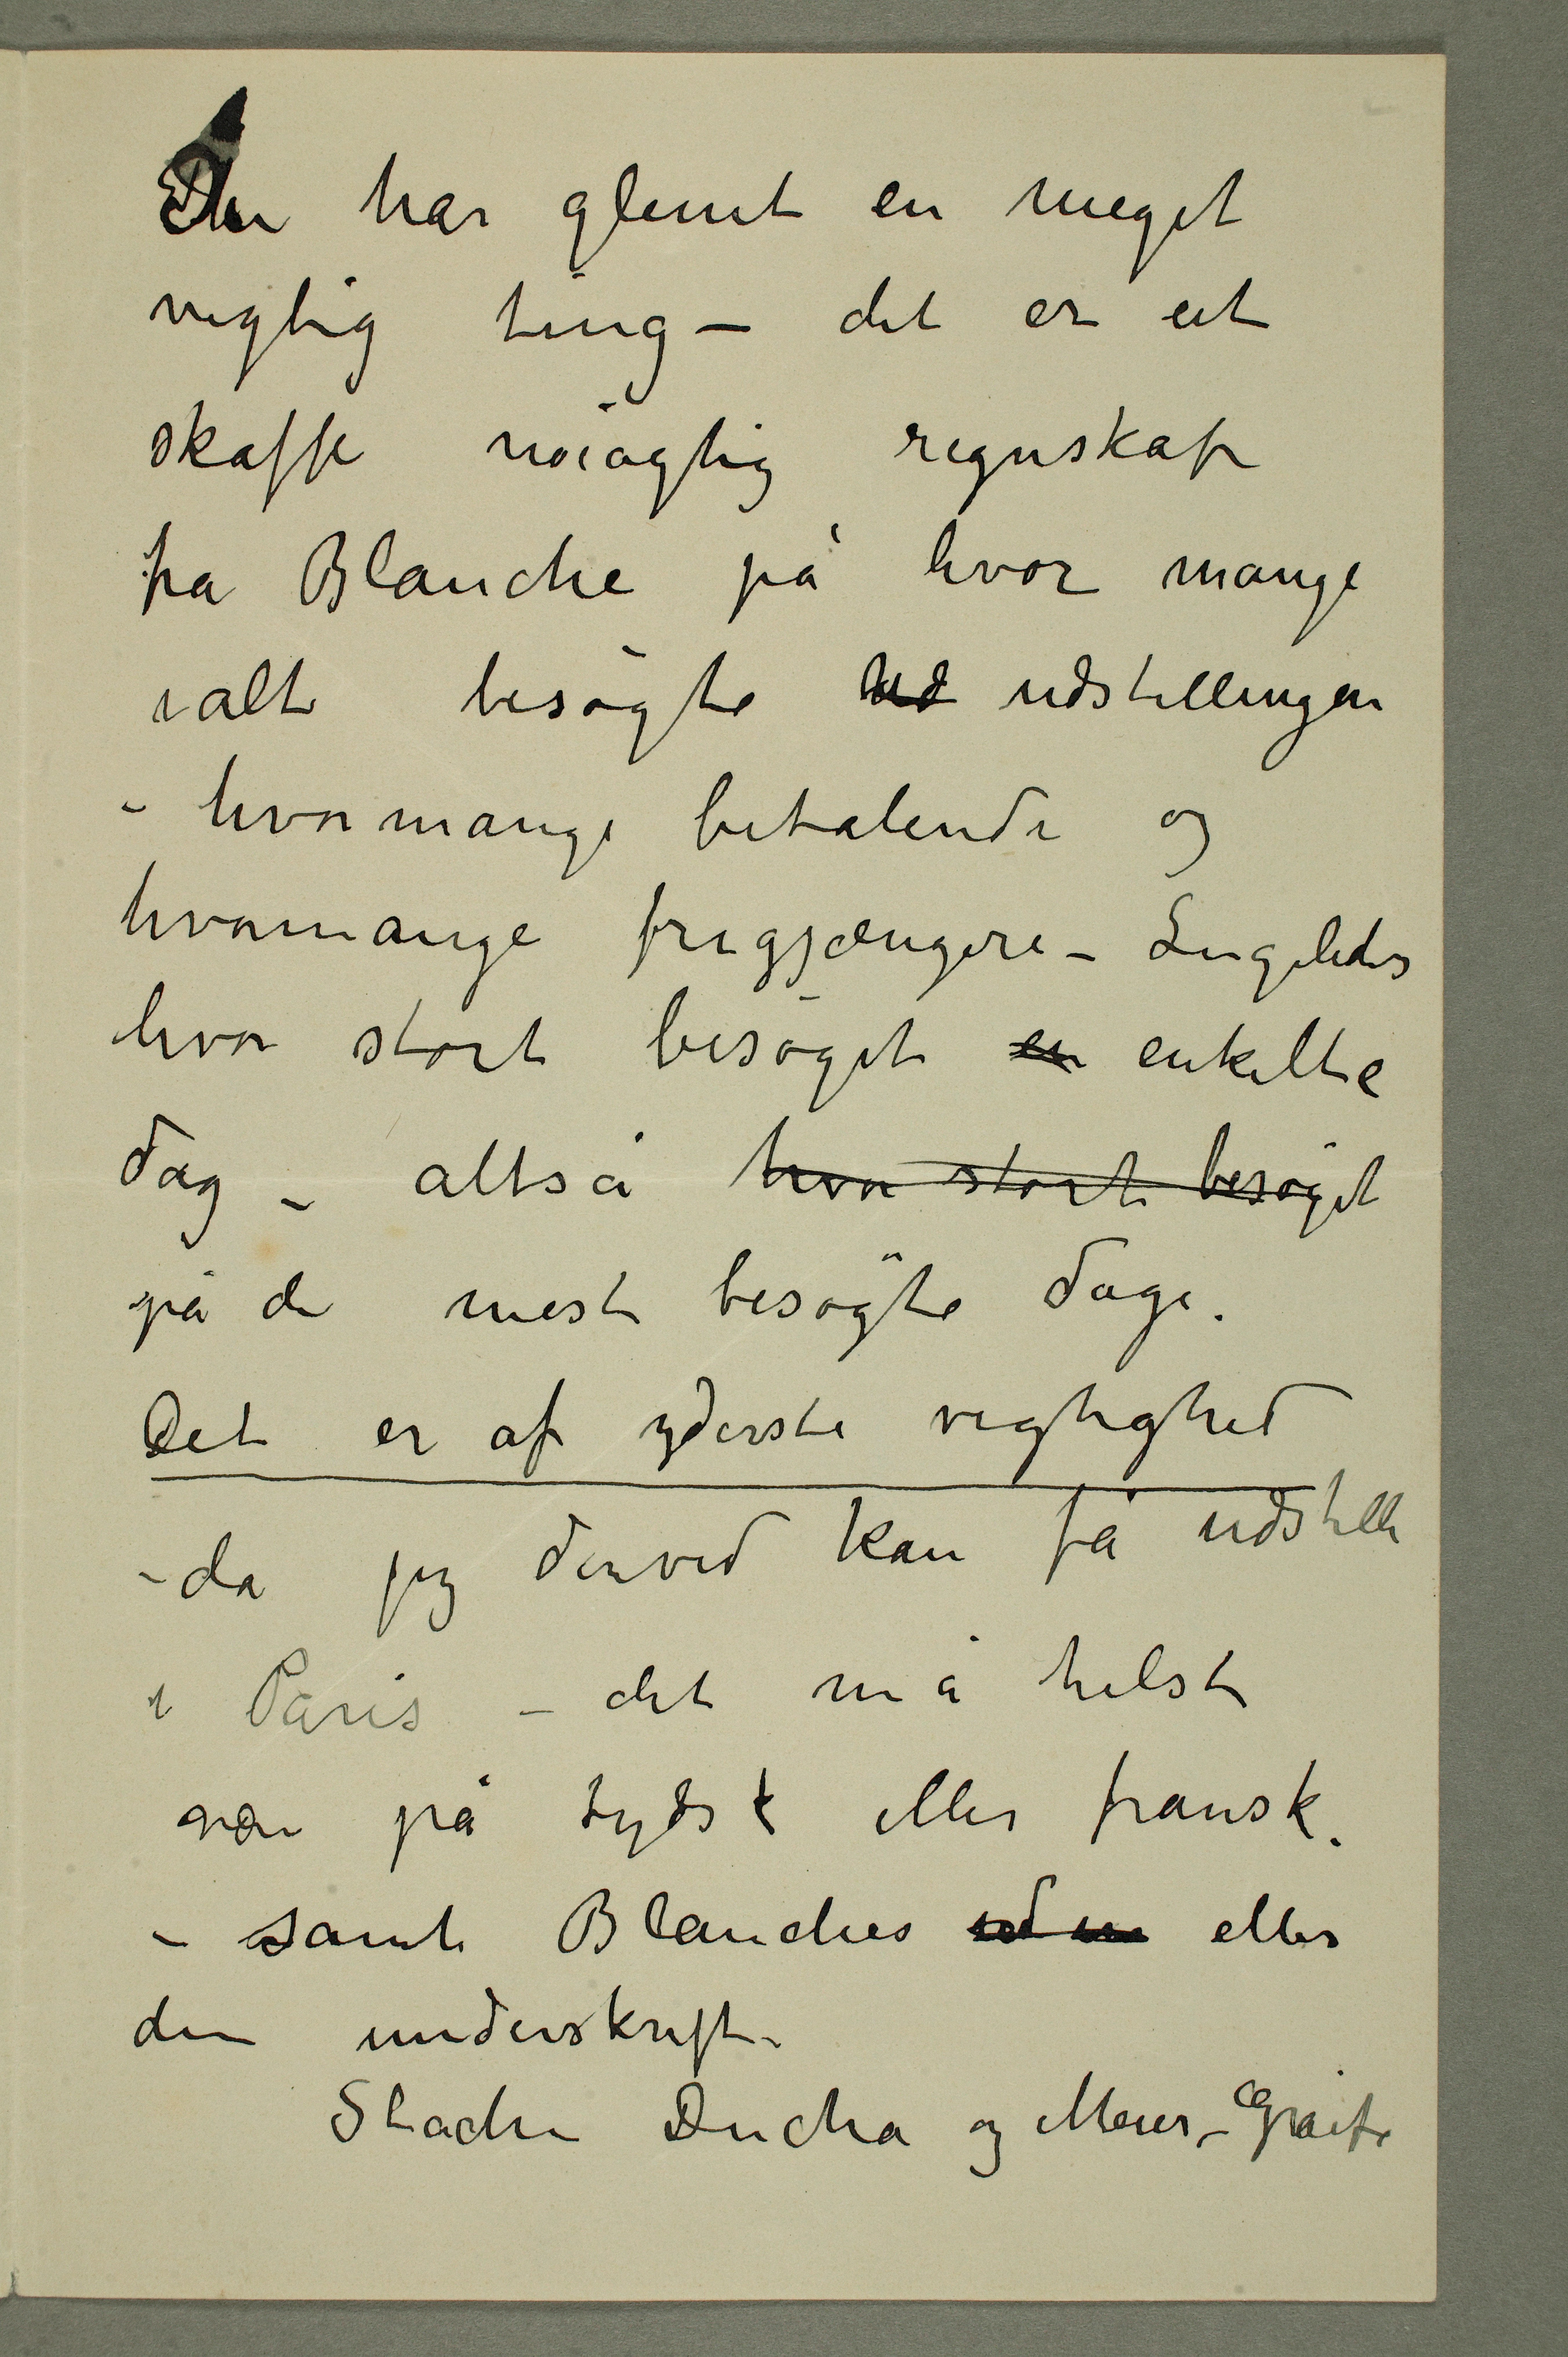 Du har glemt en meget
vigtig ting – det er at
skaffe nöiagtig regnskab
fra Blanche på hvor mange
ialt besögte ud udstillingen
– hvormange betalende og
hvormange frigjængere – Ligeledes
hvor stort besöget en enkelte
dag – altså hvor stort besöget
på de mest besögte dage.
Det er af yderste vigtighed
– da jeg derved kan få udstille
i Paris – det må helst
være på tydsk eller fransk.
– samt Blanches eller
din underskrift –
Stachu Ducha og Meier-Gräfe